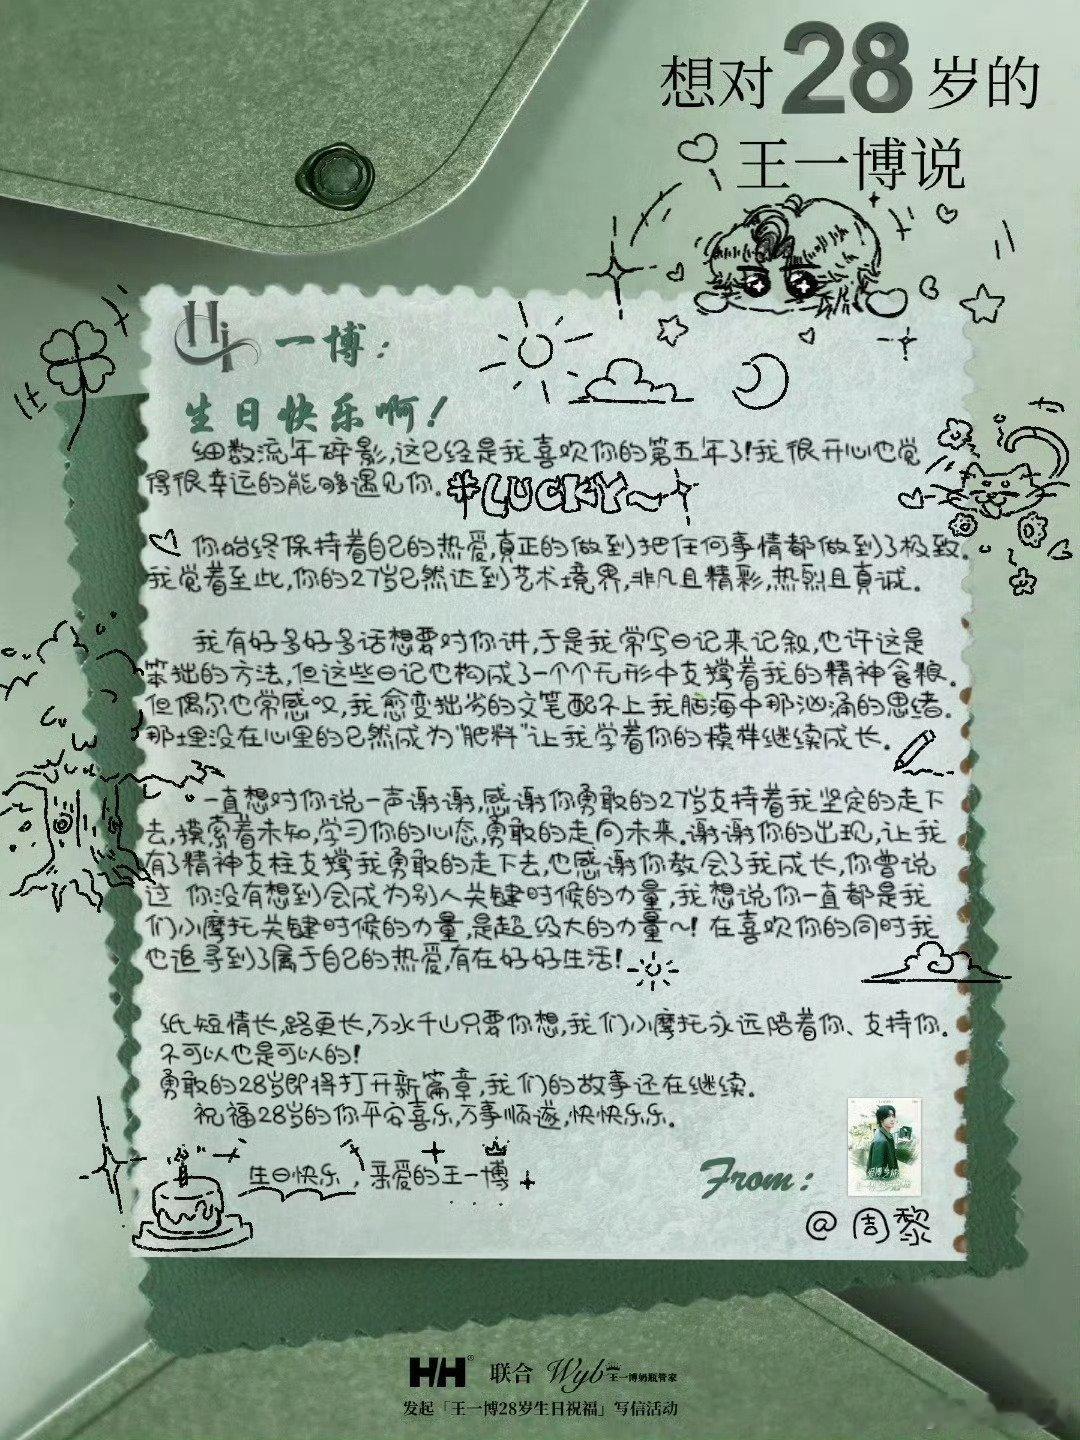 想对28岁的
王一博说
Hi 一博：
生日快乐啊！
细数流年碎影,这已经是我喜欢你的第五年了!我很开心也觉
得很幸运的能够遇见你.
#LUCKY~
你始终保持着自己的热爱,真正的做到把任何事情都做到了极致.
我觉着至此,你的27岁已然达到艺术境界,非凡且精彩,热烈且真诚.
我有好多好多话想要对你讲,于是我常写日记来记叙,也许这是
笨拙的方法,但这些日记也构成了一个个无形中支撑着我的精神食粮.
但偶尔也常感叹,我愈变拙劣的文笔配不上我脑海中那汹涌的思绪.
那埋没在心里的已然成为"肥料"让我学着你的模样继续成长.
一直想对你说一声谢谢,感谢你勇敢的27岁支持着我坚定的走下
去,摸索着未知,学习你的心态,勇敢的走向未来.谢谢你的出现,让我
有了精神支柱支撑我勇敢的走下去,也感谢你教会了我成长,你曾说
过 你没有想到会成为别人关键时候的力量,我想说你一直都是我
们小摩托关键时候的力量,是超级大的力量~! 在喜欢你的同时我
也追寻到了属于自己的热爱,有在好好生活!
纸短情长,路更长,万水千山只要你想,我们小摩托永远陪着你、支持你.
不可以也是可以的!
勇敢的28岁即将打开新篇章,我们的故事还在继续.
祝福28岁的你平安喜乐,万事顺遂,快快乐乐.
生日快乐,亲爱的王一博
From:
@周黎
HH® 联合 Wyb 王一博奶瓶管家
发起「王一博28岁生日祝福」写信活动